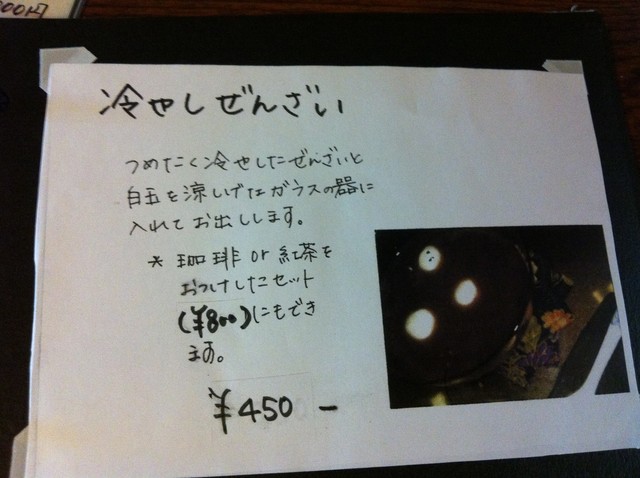 000円
冷やしぜんざい
つめたく冷やしたぜんざいと
白玉を涼しげなガラスの器に
入れてお出しします。
* 珈琲 or 紅茶を
おつけしたセット
(¥800)にもでき
ます。
¥450 ー